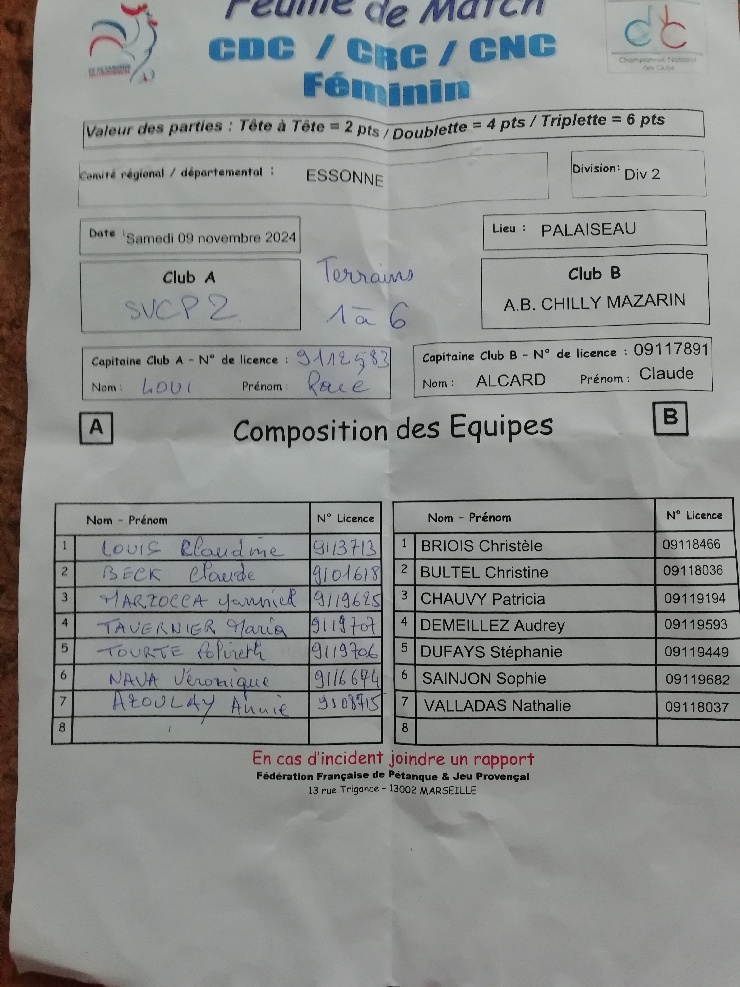 Feuille de Match
CDC / CRC / CNC
Féminin
Championnat National
des Clubs
Valeur des parties : Tête à Tête = 2 pts / Doublette = 4 pts / Triplette = 6 pts
Comité régional / départemental : ESSONNE
Division: Div 2
Date : Samedi 09 novembre 2024
Lieu : PALAISEAU
Club A
SVCP2
Terrains
1 à 6
Club B
A.B. CHILLY MAZARIN
Capitaine Club A - N° de licence :
Nom : Prénom :
Capitaine Club B - N° de licence : 09117891
Nom : ALCARD Prénom : Claude
A
Composition des Equipes
B
Nom - Prénom N° Licence
1 LOUIS Claudine 9113713
2 BECK Claude 9101618
3 MARZOCCA Yannick 9119625
4 TAVERNIER Maria 9119707
5 TOURTE 9119706
6 NAVA Véronique 9116674
7 AZOULAY Annie 9108715
8
Nom - Prénom N° Licence
1 BRIOIS Christèle 09118466
2 BULTEL Christine 09118036
3 CHAUVY Patricia 09119194
4 DEMEILLEZ Audrey 09119593
5 DUFAYS Stéphanie 09119449
6 SAINJON Sophie 09119682
7 VALLADAS Nathalie 09118037
8
En cas d'incident joindre un rapport
Fédération Française de Pétanque & Jeu Provençal
13 rue Trigance - 13002 MARSEILLE